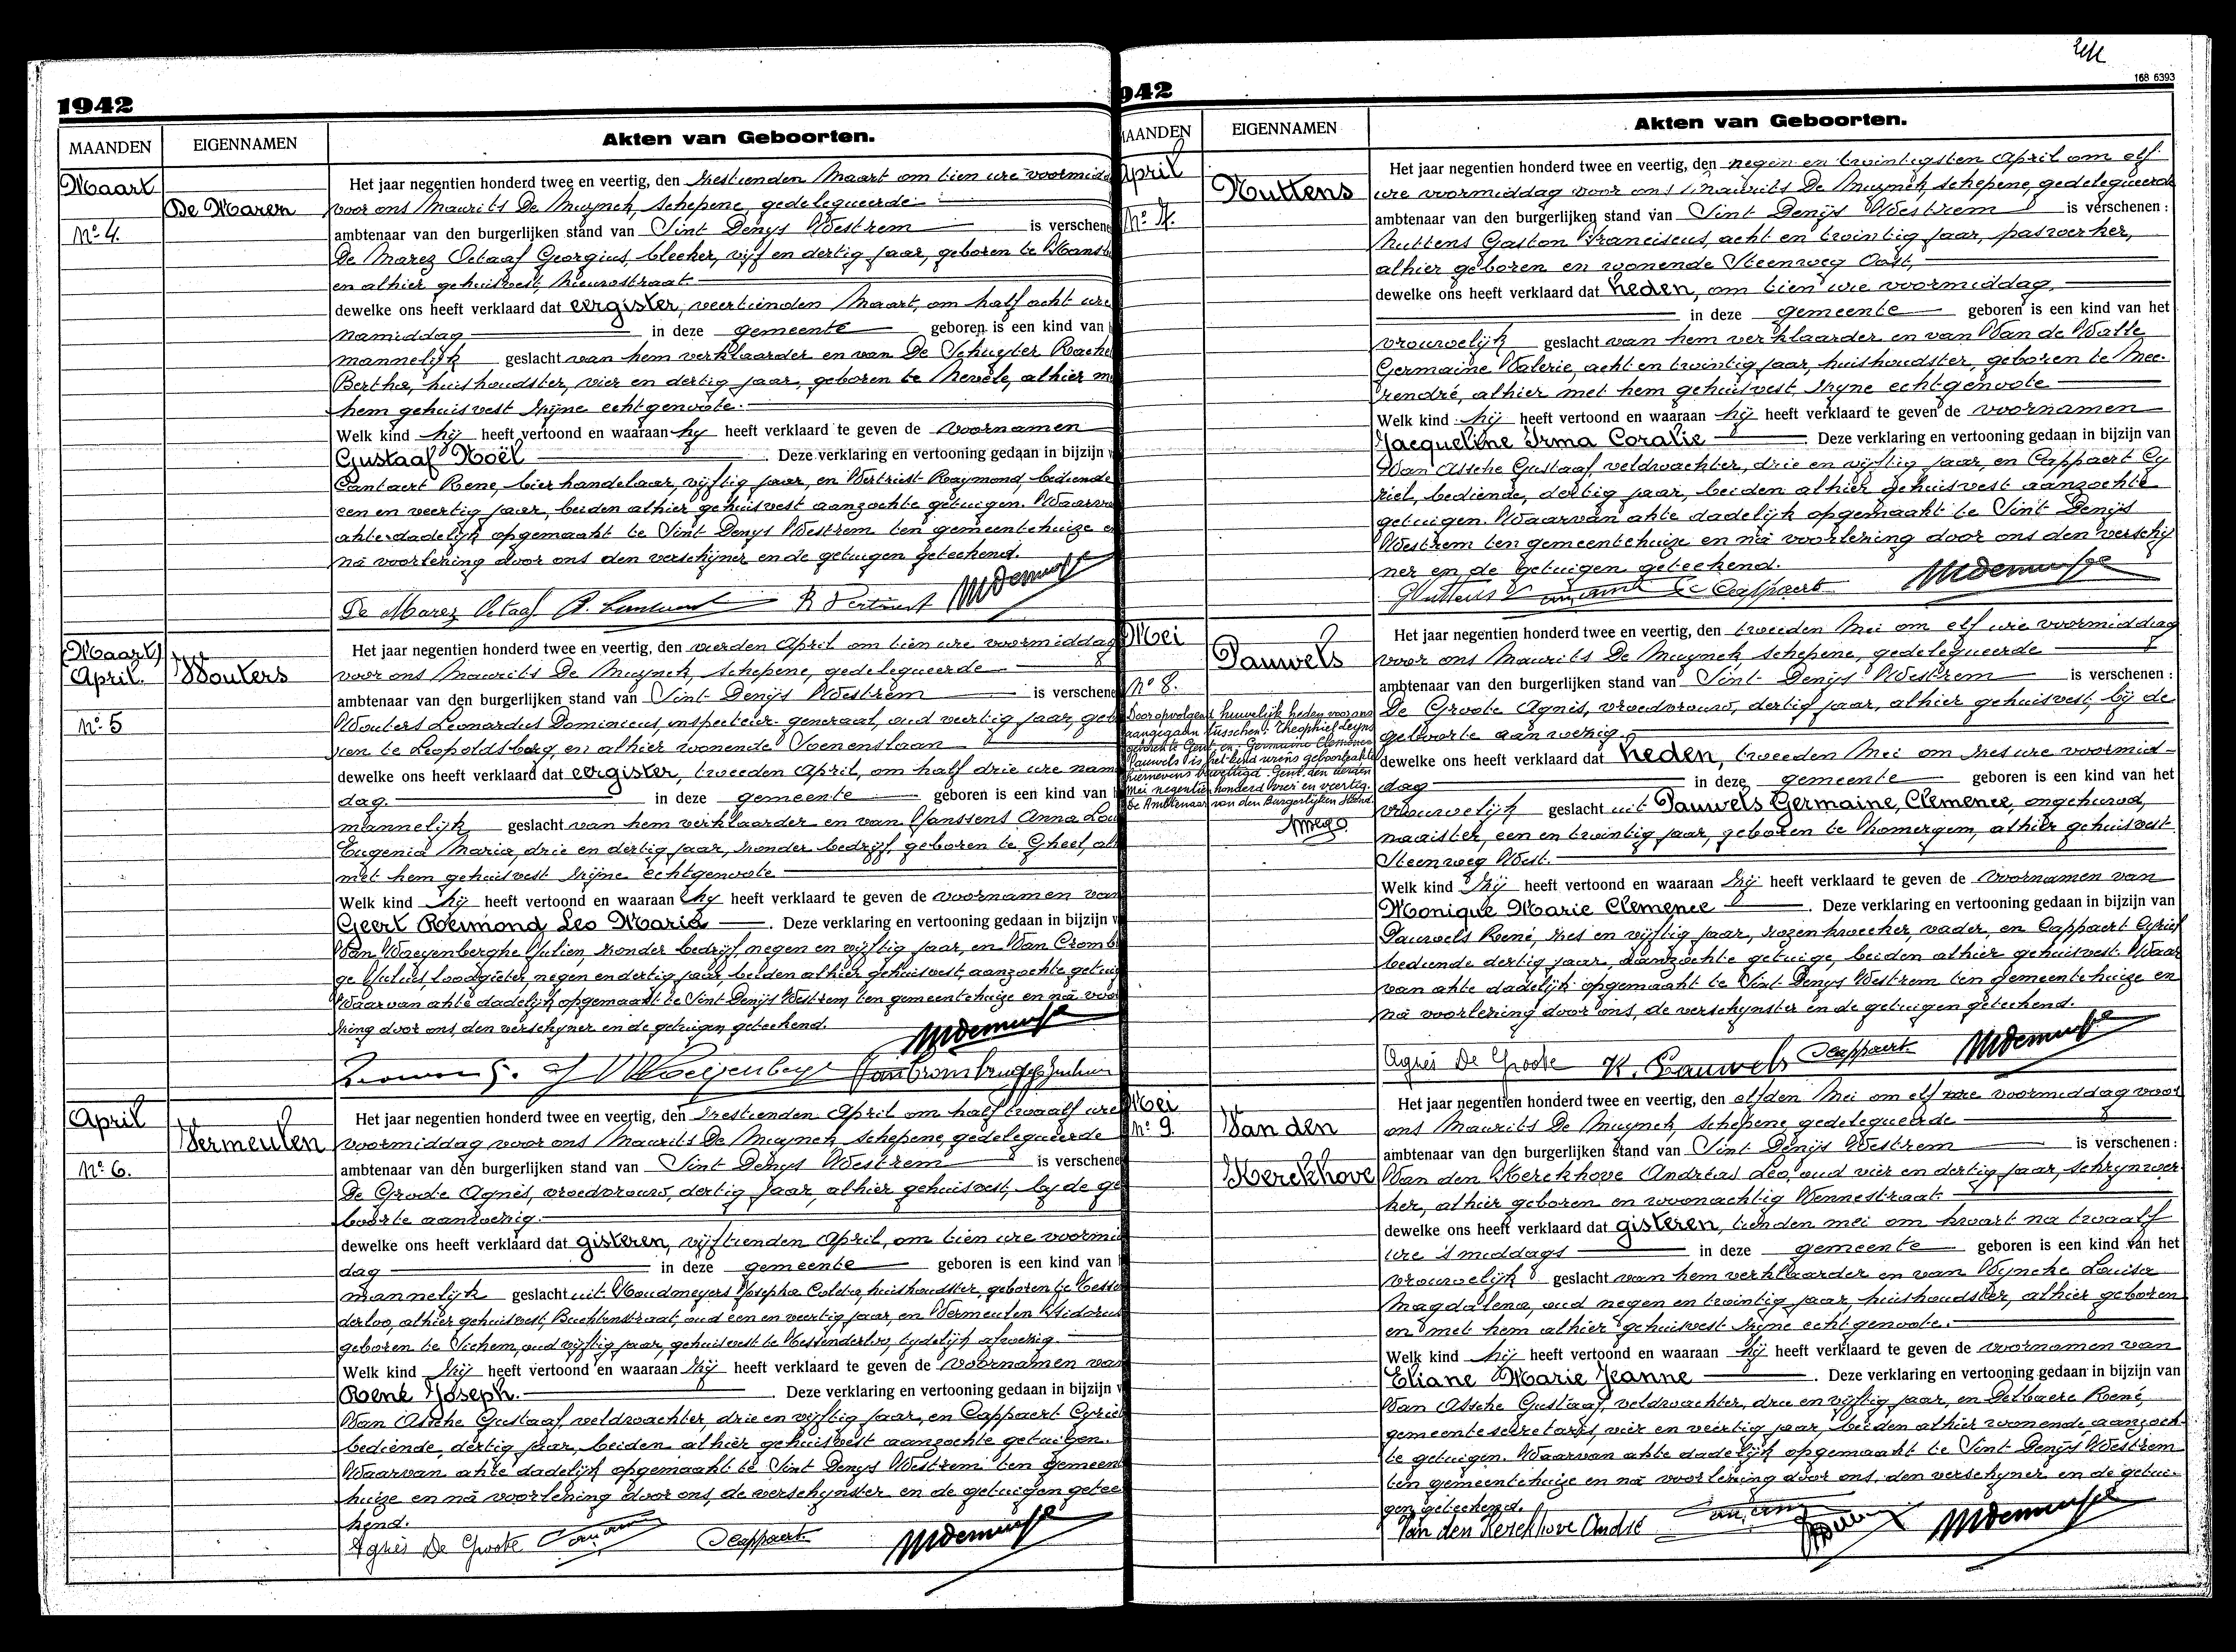 1942
MAANDEN EIGENNAMEN Akten van Geboorten.
Maart
De Marez
No. 4.
Het jaar negentien honderd twee en veertig, den zestienden Maart om tien ure voormidd
voor ons Maurits De Muynck, Schepene, gedelegueerde
ambtenaar van den burgerlijken stand van Sint Denys Westrem is verschene
De Marez Octaaf Georgius, bleeker, vijf en dertig jaar, geboren te
en alhier gehuisvest, Nieuwstraat
dewelke ons heeft verklaard dat eergister, veertienden Maart, om half acht ure
namiddag in deze gemeente geboren is een kind van
mannelijk geslacht van hem verklaarder en van De Schuyter Rachel
Bertha, huishoudster, vier en dertig jaar, geboren te Nevele, alhier m
hem gehuisvest zijne echtgenoote.
Welk kind hij heeft vertoond en waaraan hy heeft verklaard te geven de voornamen
Gustaaf Noël . Deze verklaring en vertooning gedaan in bijzijn v
Cantaert Rene, bierhandelaar, vijftig jaar, en Vertriest Raymond, bediende
een en veertig jaar, beiden alhier gehuisvest aanzochte getuigen. Waarva
akte dadelijk opgemaakt te Sint Denys Westrem ten gemeentehuize e
na voorlezing door ons den verschijner en de getuigen geteekend.
De Marez Octaaf R Vertriest
(Maart)
April. Wouters
No. 5
Het jaar negentien honderd twee en veertig, den vierden April om tien ure voormiddag
voor ons Maurits De Muynck, Schepene, gedelegueerde
ambtenaar van den burgerlijken stand van Sint Denijs Westrem is verschene
Wouters Leonardus Dominicus, inspecteur-generaal, oud veertig jaar, geb
ren te Leopoldsburg, en alhier wonende Soenenslaan
dewelke ons heeft verklaard dat eergister, tweeden April, om half drie ure nam
dag. in deze gemeente geboren is een kind van
mannelijk geslacht van hem verklaarder en van Janssens Anna Lou
Eugenia Maria, drie en dertig jaar, zonder bedrijf, geboren te Gheel, al
met hem gehuisvest zijne echtgenoote
Welk kind hij heeft vertoond en waaraan hy heeft verklaard te geven de voornamen van
Geert Reimond Leo Maria . Deze verklaring en vertooning gedaan in bijzijn v
Van Waeyenberghe Julien, zonder bedrijf, negen en vijftig jaar, en Van Cromb
ge Julius, loodgieter, negen en dertig jaar, beiden alhier gehuisvest, aanzochte getuig
Waarvan akte dadelijk opgemaakt te Sint Denijs Westrem, ten gemeentehuize en na voo
zing door ons, den verschyner en de getuigen geteekend.
April
Vermeulen
No. 6.
Het jaar negentien honderd twee en veertig, den zestienden April om half twaalf ure
voormiddag voor ons Maurits De Muynck, Schepene, gedelegueerde
ambtenaar van den burgerlijken stand van Sint Denys Westrem is verschene
De Groote Agnès, vroedvrouw, dertig jaar, alhier gehuisvest, by de ge
boorte aanwezig.
dewelke ons heeft verklaard dat gisteren, vijftienden April, om tien ure voormid
dag in deze gemeente geboren is een kind van
mannelijk geslacht uit Houdmeyers Josepha Coleta, huishoudster, geboren te Tessen
derloo, alhier gehuisvest, Buchtenstraat, oud een en veertig jaar, en Vermeulen Isidorus
geboren te Sichem, oud vijftig jaar, gehuisvest te Tessenderloo, tydelijk afwezig.
Welk kind zij heeft vertoond en waaraan zij heeft verklaard te geven de voornamen van
René Joseph. . Deze verklaring en vertooning gedaan in bijzijn v
Van Assche Gustaaf, veldwachter, drie en vijftig jaar, en Cappaert Cyriel
bediende, dertig jaar, beiden alhier gehuisvest aanzochte getuigen.
Waarvan akte dadelijk opgemaakt te Sint Denys Westrem ten gemeent
huize en na voorlezing door ons, de verschynster en de getuigen getee
kend.
Agnès De Groote Cappaert
168 6393
942
MAANDEN EIGENNAMEN Akten van Geboorten.
April
Nuttens
No. 7.
Het jaar negentien honderd twee en veertig, den negen en twintigsten April om elf
ure voormiddag voor ons Maurits De Muynck, Schepene, gedelegueerde
ambtenaar van den burgerlijken stand van Sint Denijs Westrem is verschenen :
Nuttens Gaston Franciscus, acht en twintig jaar, paswerker,
alhier geboren en wonende Steenweg Oost,
dewelke ons heeft verklaard dat heden, om tien ure voormiddag,
in deze gemeente geboren is een kind van het
vrouwelijk geslacht van hem verklaarder en van Van de Walle
Germaine Valerie, acht en twintig jaar, huishoudster, geboren te Mee-
rendré, alhier met hem gehuisvest, zijne echtgenoote
Welk kind hij heeft vertoond en waaraan hij heeft verklaard te geven de voornamen
Jacqueline Irma Coralie . Deze verklaring en vertooning gedaan in bijzijn van
Van Assche Gustaaf, veldwachter, drie en vijftig jaar, en Cappaert Cy
riel, bediende, dertig jaar, beiden alhier gehuisvest aanzochte
getuigen. Waarvan akte dadelijk opgemaakt te Sint Denijs
Westrem ten gemeentehuize en na voorlezing door ons den verschij
ner en de getuigen geteekend.
Nuttens Cappaert
Mei
Pauwels
No 8.
Door opvolgend huwelijk heden voor ons
aangegaan tusschen: Theophiel
te Gent en Germaine Clemence
Pauwels is het kind wiens geboorteakte
hiernevens Gent den
Mei negentien honderd vier en veertig.
De Ambtenaar van den Burgerlijken Stand.
Het jaar negentien honderd twee en veertig, den tweeden Mei om elf ure voormiddag
voor ons Maurits De Muynck, Schepene, gedelegueerde
ambtenaar van den burgerlijken stand van Sint Denijs Westrem is verschenen :
De Groote Agnès, vroedvrouw, dertig jaar, alhier gehuisvest, bij de
geboorte aanwezig.
dewelke ons heeft verklaard dat heden, tweeden Mei om zes ure voormid-
dag in deze gemeente geboren is een kind van het
vrouwelijk geslacht uit Pauwels Germaine, Clemence, ongehuwd,
naaister, een en twintig jaar, geboren te Somergem, alhier gehuisvest
Steenweg West.
Welk kind zij heeft vertoond en waaraan zij heeft verklaard te geven de voornamen van
Monique Marie Clemence . Deze verklaring en vertooning gedaan in bijzijn van
Pauwels René, zes en vijftig jaar, rozenkweeker, vader, en Cappaert Cyriel
bediende dertig jaar, aanzochte getuige, beiden alhier gehuisvest. Waar
van akte dadelijk opgemaakt te Sint Denys Westrem ten gemeentehuize en
na voorlezing door ons, de verschynster en de getuigen geteekend.
Agnès De Groote R. Pauwels Cappaert
Mei
No. 9. Van den
Kerckhove
Het jaar negentien honderd twee en veertig, den elfden Mei om elf ure voormiddag voor
ons Maurits De Muynck, Schepene, gedelegueerde
ambtenaar van den burgerlijken stand van Sint Denijs Westrem is verschenen :
Van den Kerckhove Andréas Leo, oud vier en dertig jaar, schrynwer-
ker, alhier geboren en woonachtig Vennestraat
dewelke ons heeft verklaard dat gisteren, tienden mei om kwart na twaalf
ure 's middags in deze gemeente geboren is een kind van het
vrouwelijk geslacht van hem verklaarder en van Wyncke Louisa
Magdalena, oud negen en twintig jaar, huishoudster, alhier geboren
en met hem alhier gehuisvest zijne echtgenoote.
Welk kind hij heeft vertoond en waaraan hij heeft verklaard te geven de voornamen van
Eliane Marie Jeanne . Deze verklaring en vertooning gedaan in bijzijn van
Van Assche Gustaaf, veldwachter, drie en vijftig jaar, en Delbaere René,
gemeentesecretaris, vier en veertig jaar, beiden alhier wonende, aanzoch-
te getuigen. Waarvan akte dadelijk opgemaakt te Sint Denijs Westrem
ten gemeentehuize en na voorlezing door ons, den verschyner en de getui-
gen geteekend.
Van den Kerckhove André